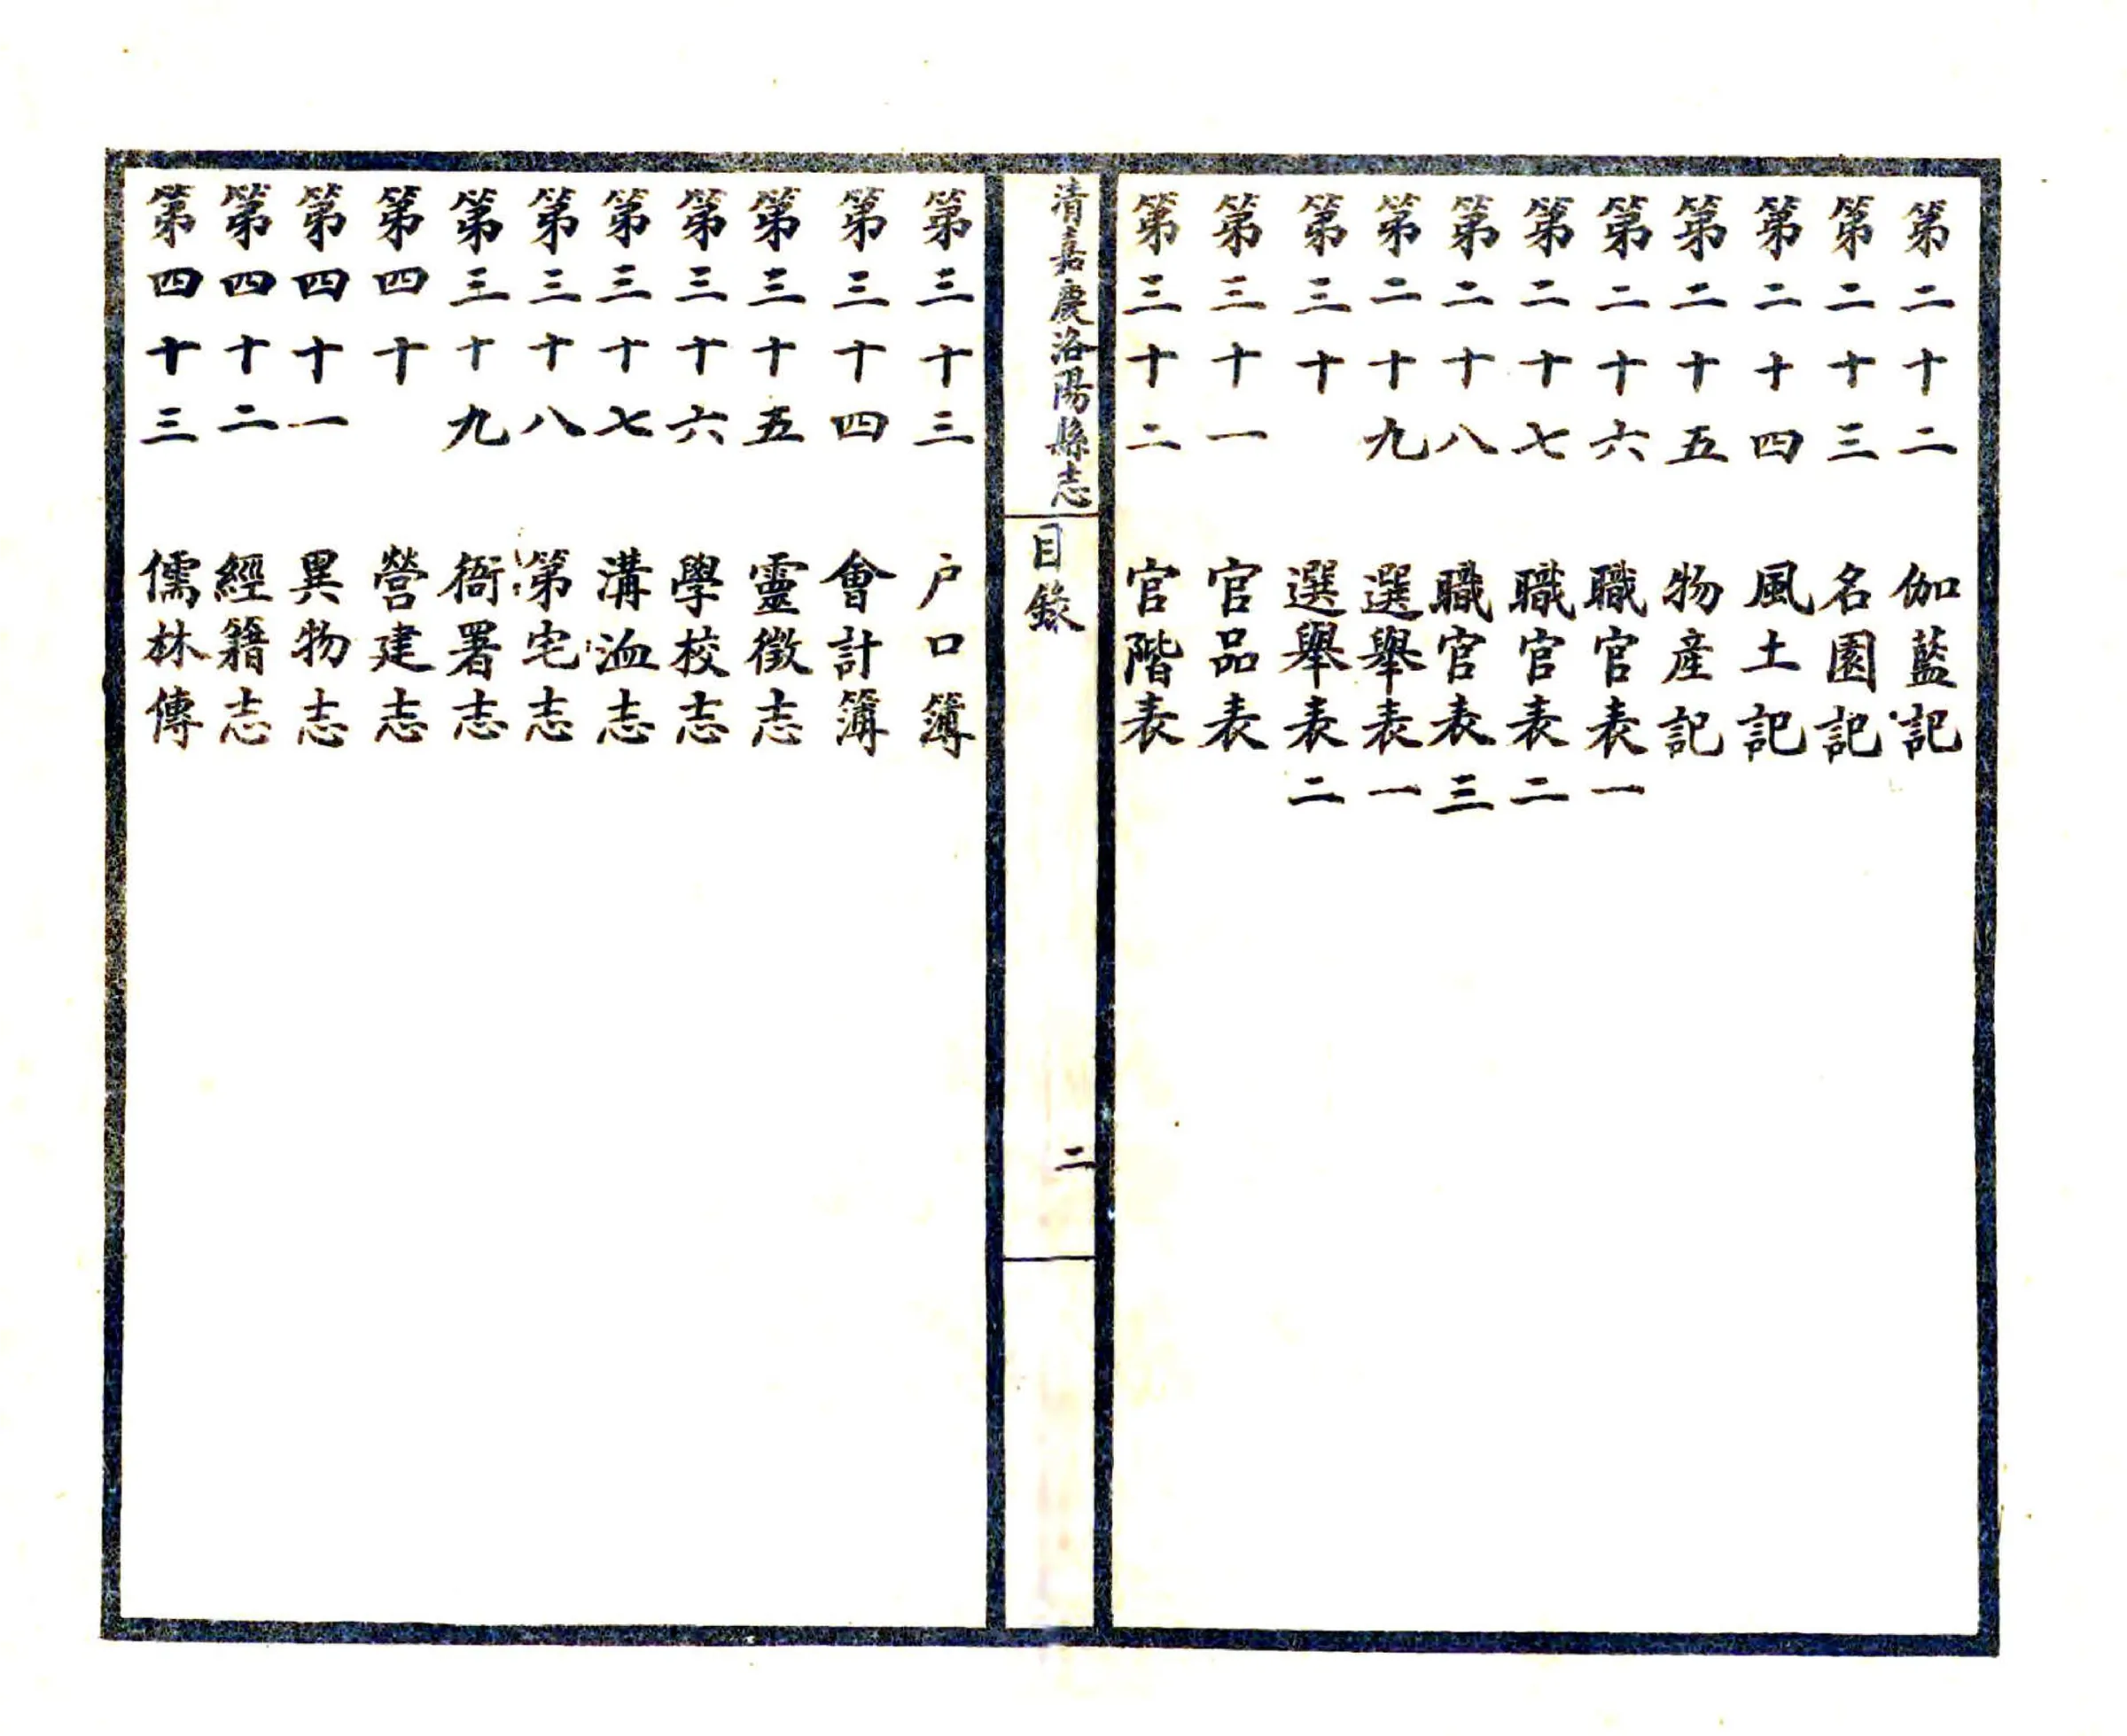 第二十二　伽藍記
第二十三　名園記
第二十四　風土記
第二十五　物產記
第二十六　職官表一
第二十七　職官表二
第二十八　職官表三
第二十九　選舉表一
第三十　選舉表二
第三十一　官品表
第三十二　官階表
清嘉慶洛陽縣志
目錄
二
第三十三　户口簿
第三十四　會計簿
第三十五　靈徵志
第三十六　學校志
第三十七　溝洫志
第三十八　第宅志
第三十九　衙署志
第四十　營建志
第四十一　異物志
第四十二　經籍志
第四十三　儒林傳